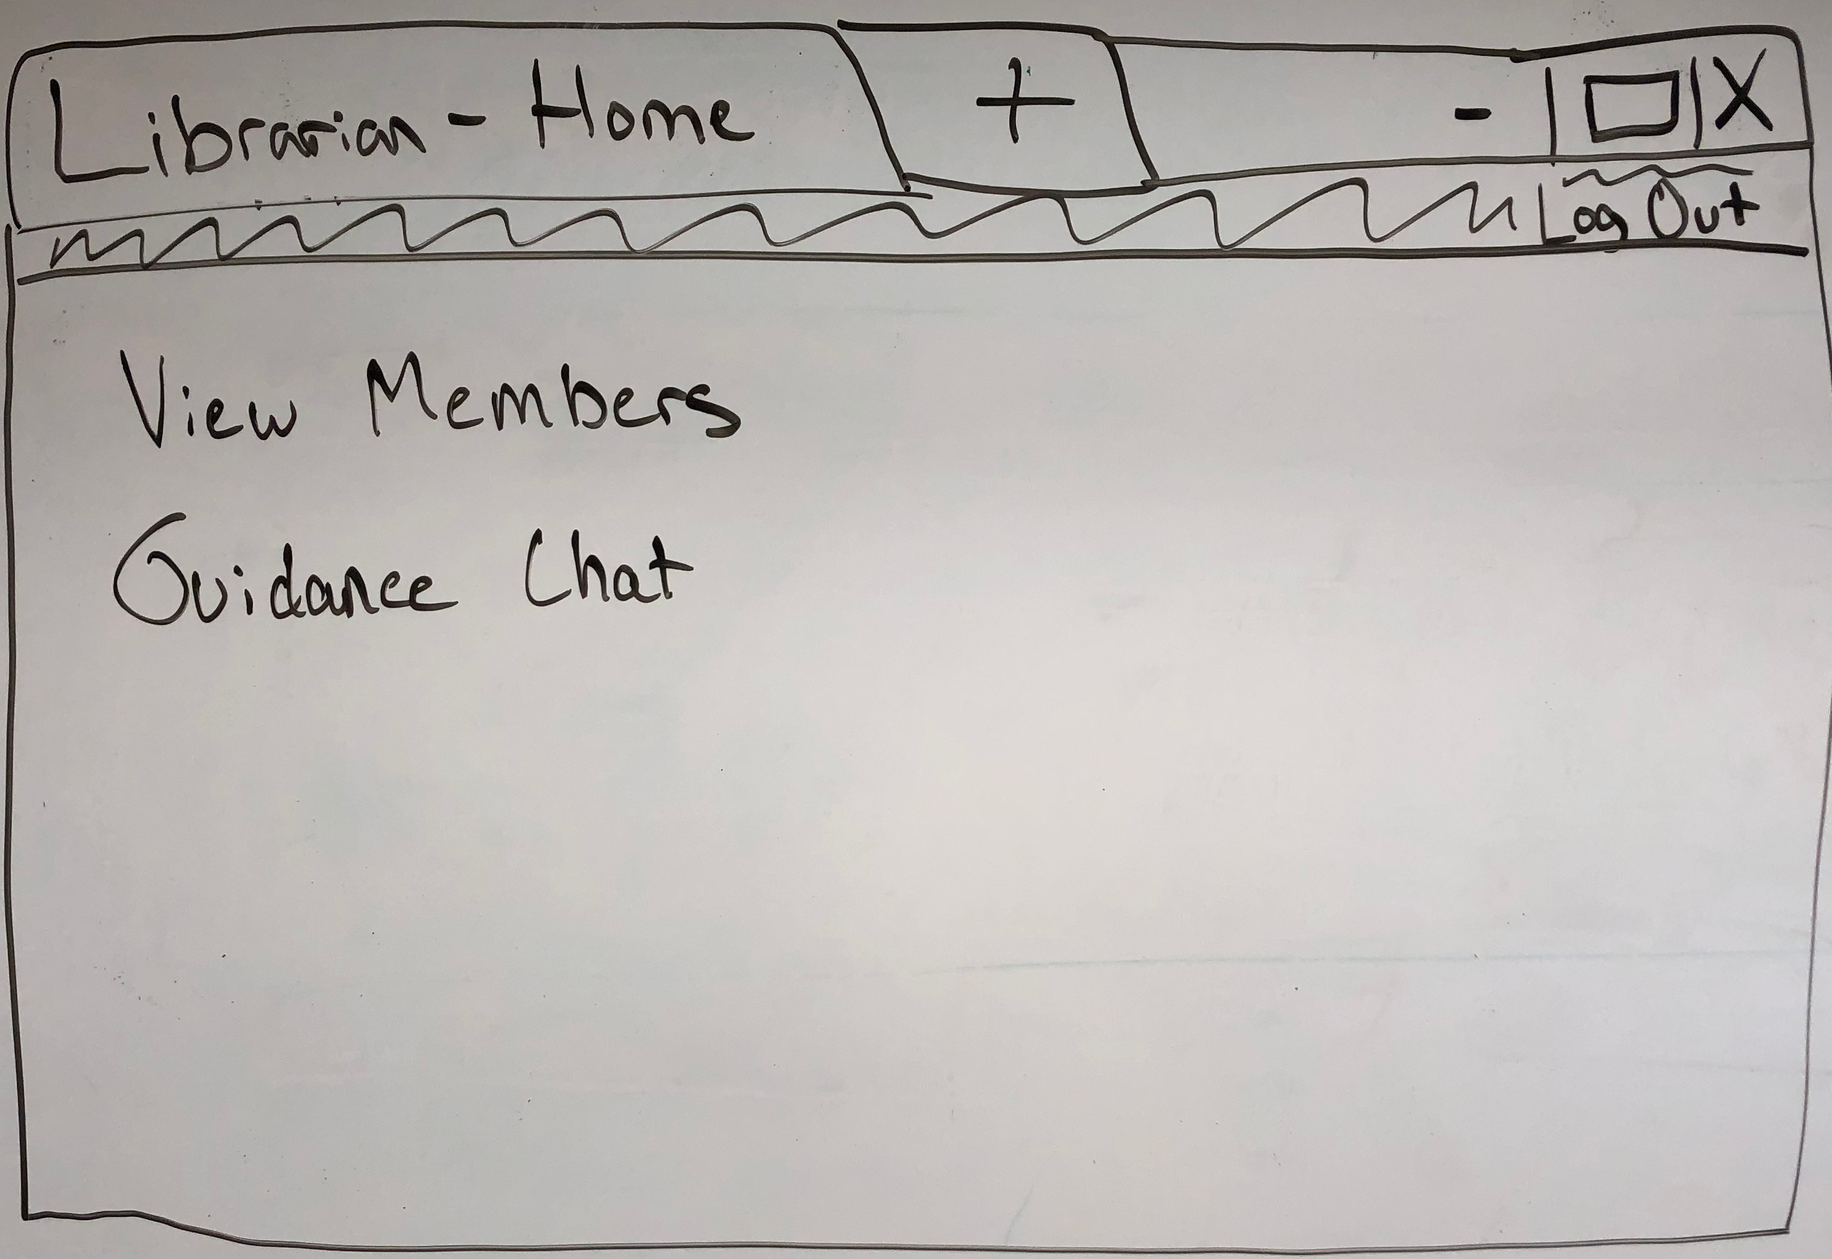 Librarian - Home + - X
Log Out
View Members
Guidance Chat